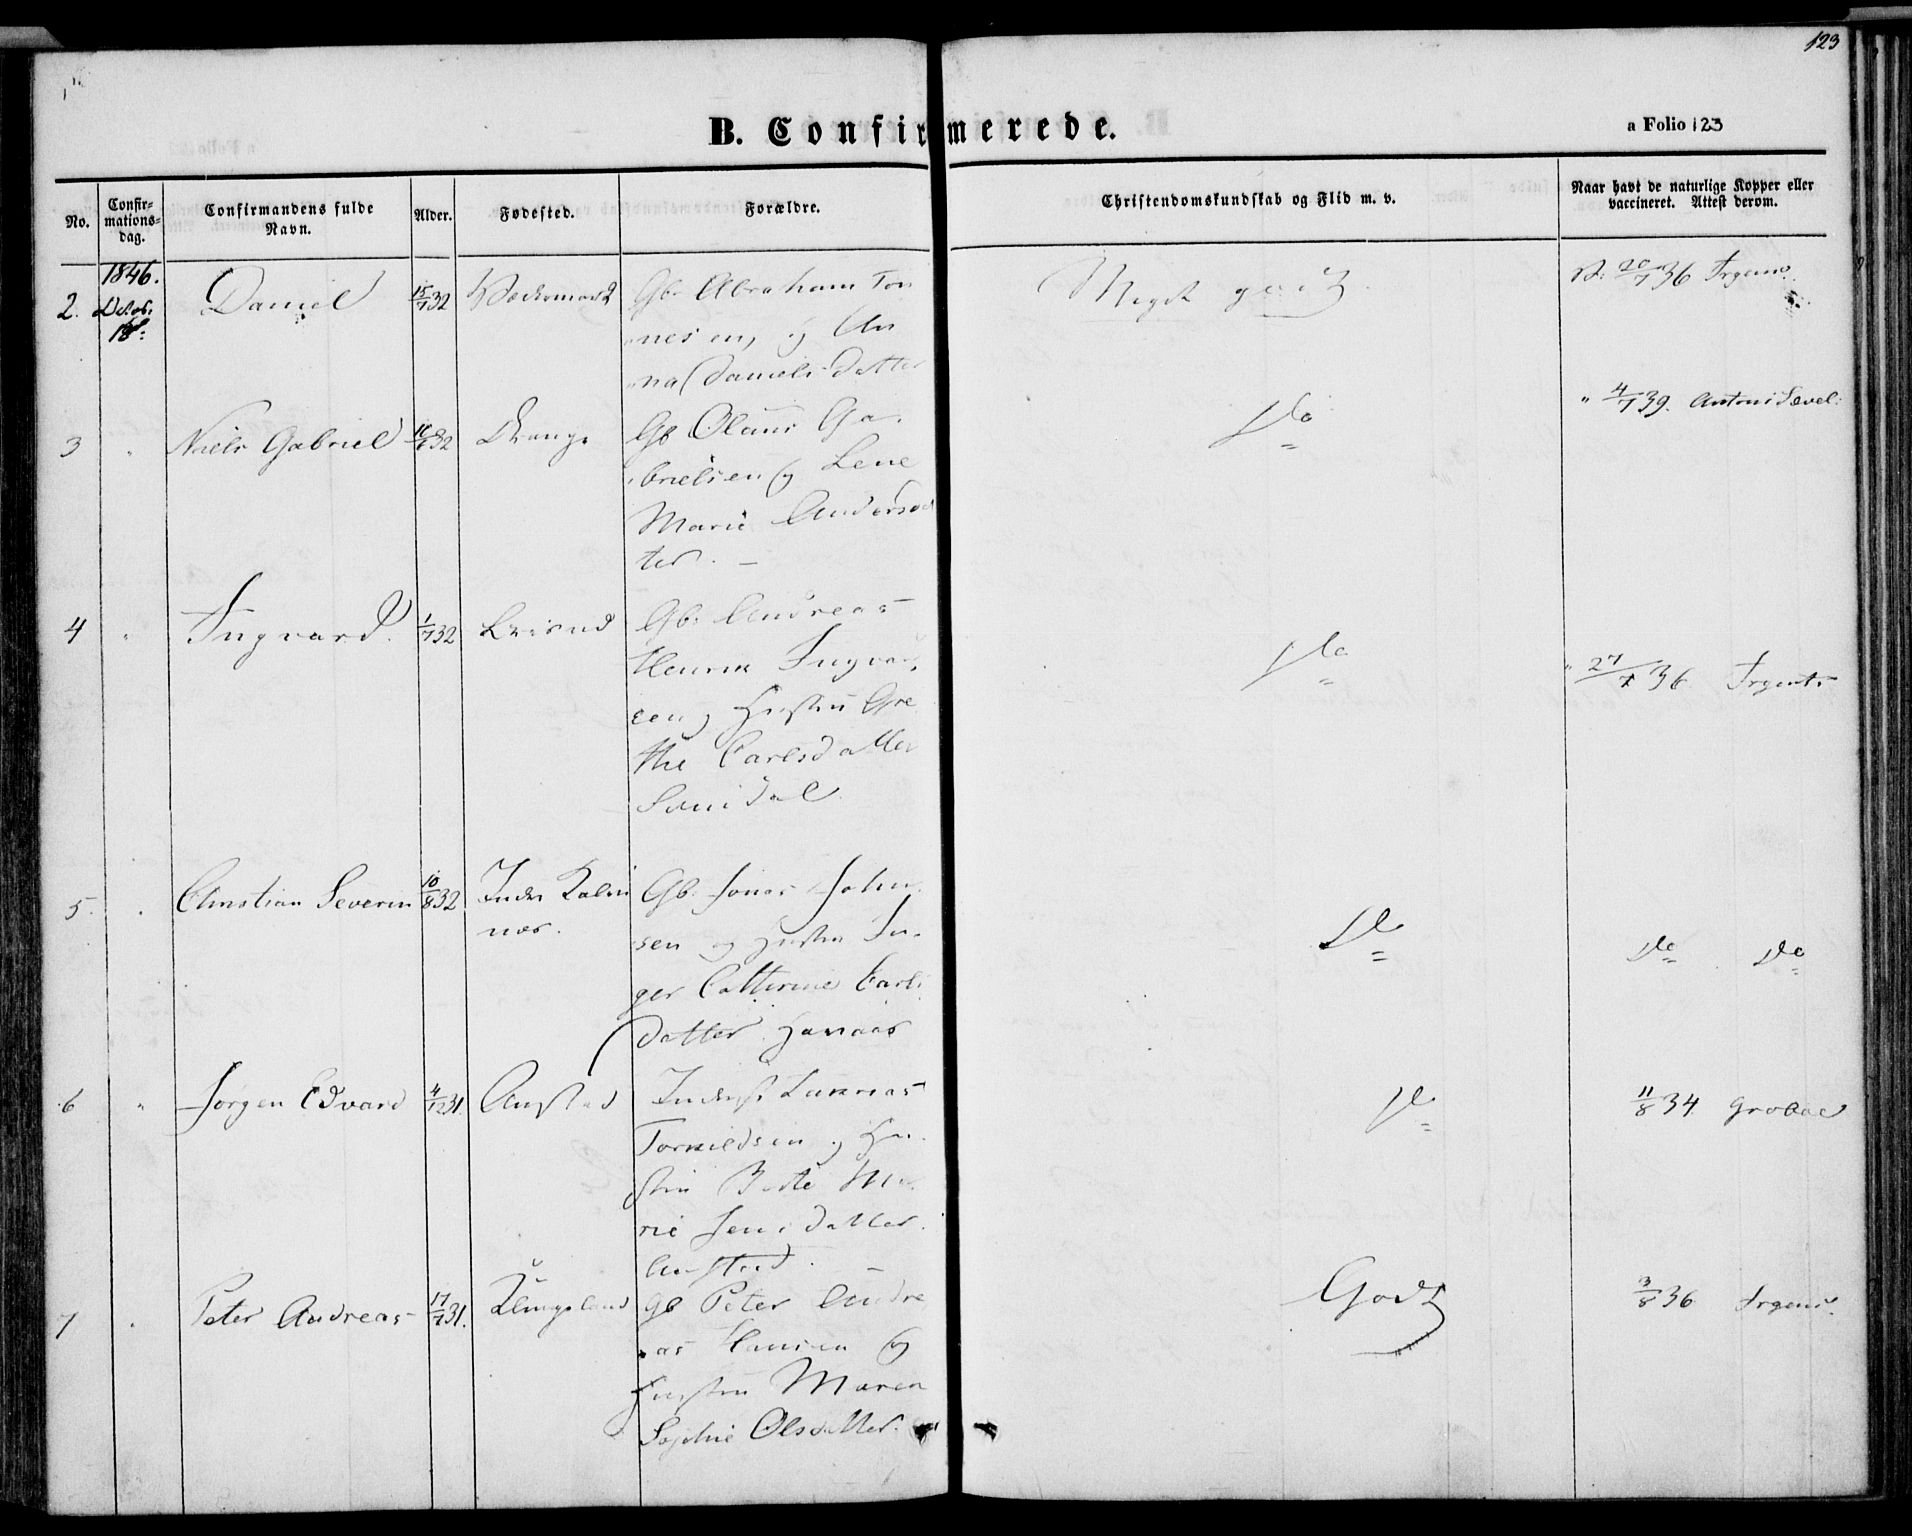 123
B. Confirmerede.
a Folio 123
No.
Confir-
mations-
dag.
Confirmandens fulde
Navn.
Alder.
Fødested.
Forældre.
Christendomskundskab og Flid m. v.
Naar havt de naturlige Kopper eller
vaccineret. Attest derom.
1846.
2. Octob. Daniel 15/7 32 Gb. Abraham Ton
18de
nesen, og An
na Danielsdatter
Meget godt
V: 20/7 36 Irgens.
3 " Niels Gabriel 32 Drange Gb Olaus Ga-
brielsen og Lene
Marie Andersdat
ter. —
Do
" 4/7 39. Antoni Sevel:
4 " Ingvard. 1/7 32 Gb: Andreas
Henrik Ingvar-
sen og Hustru Gre
the Carlsdatter
Do
" 27/7 36 Irgens
5. " Christian Severin 10/8 32 Indre Gb: Jonas John-
nes.
sen og Hustru In-
ger Cathrine Carls
datter
Do
Do Do
6 " Jørgen Edvard 4/12 31. Austad Inderst
Torkildsen og Hu-
stru Berte Ma-
rie Jensdatter
Austad.
Do
11/8 34
7 " Peter Andreas 17/7 31. Klungeland Gb Peter Andre
as Hansen og
Hustru Maren
Sophie Olsdatter.
Godt
3/8 36 Irgens.